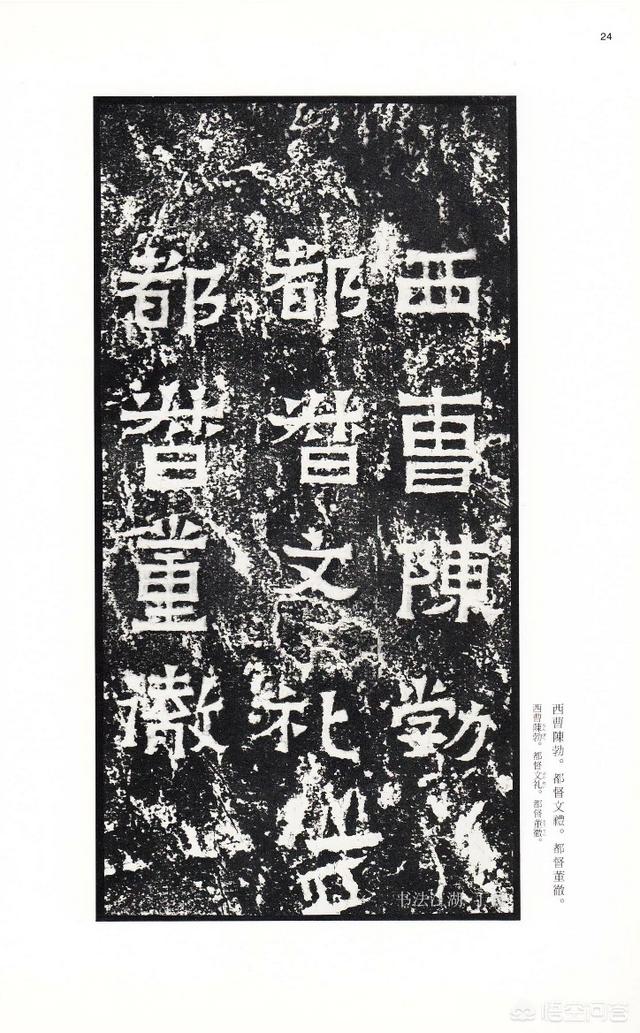 24
西曹陳勃
都督文礼
都督董徹
西曹陳勃。都督文禮。都督董徹。
西曹陳勃。都督文礼。都督董徹。
书法江湖
悟空问答